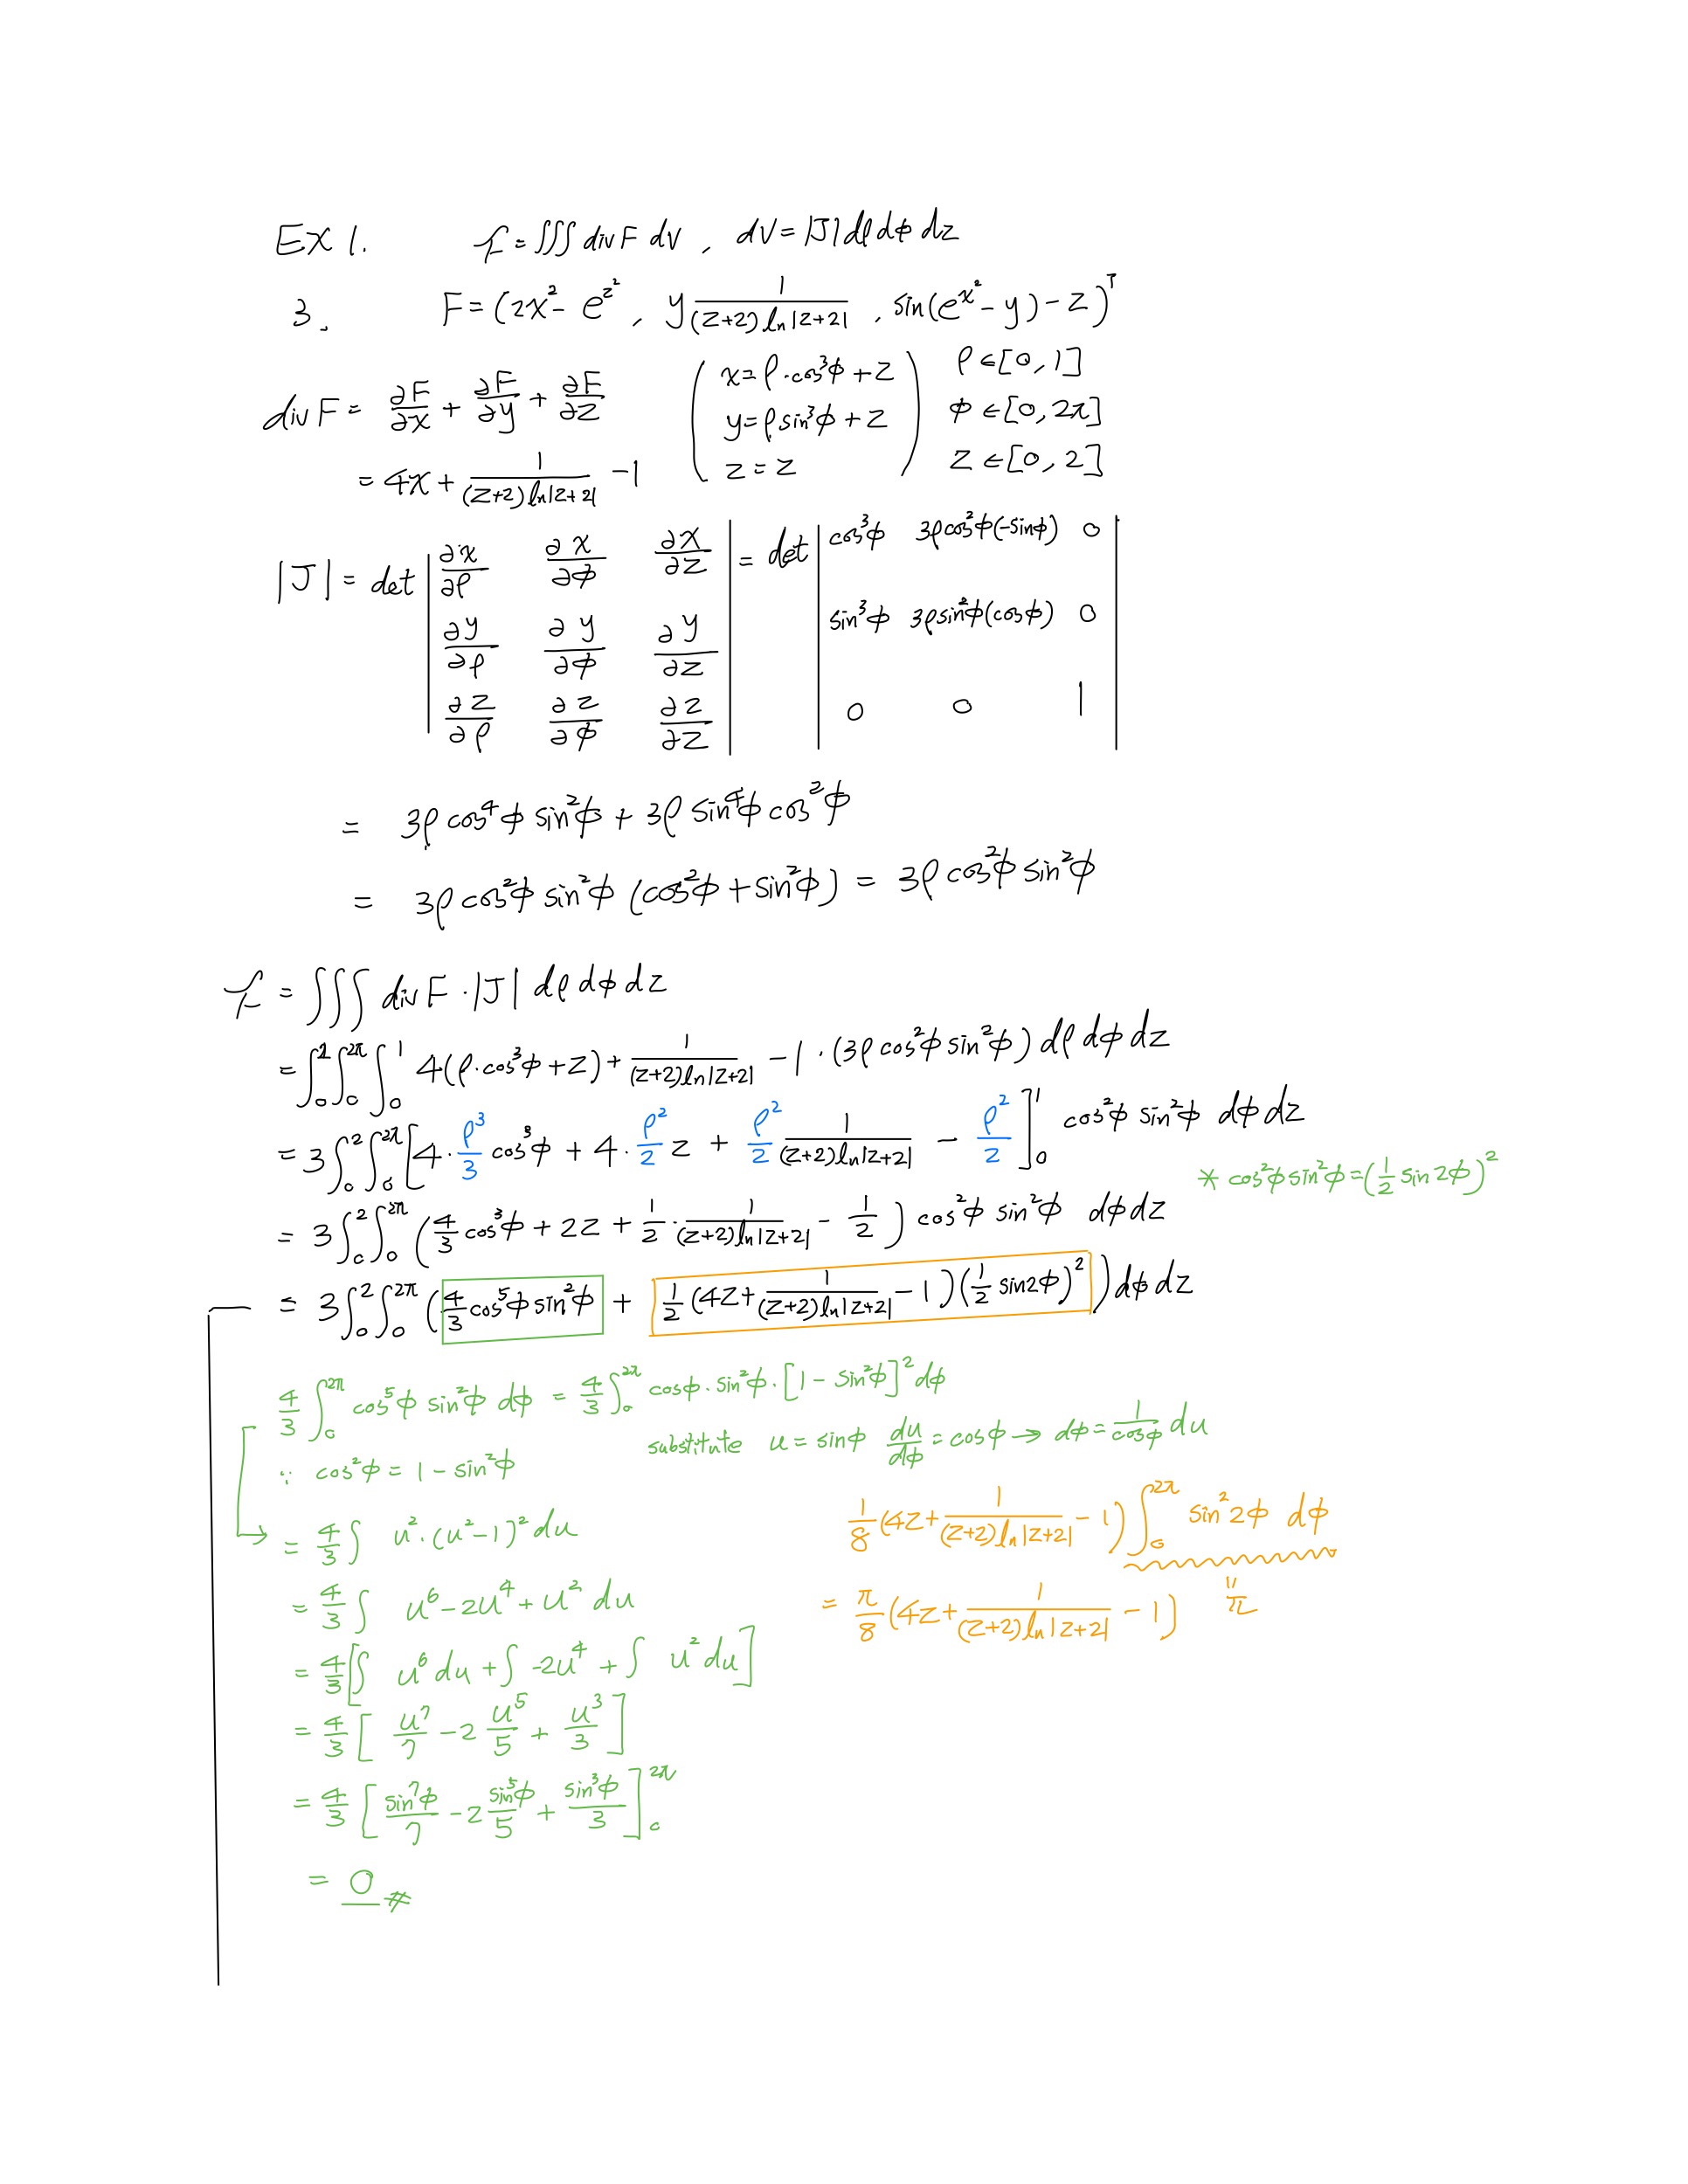 EX 1. f = ∭ div F dV , dV = |J| dρ dϕ dz
3. F = (2x² - e^{z²} , y \frac{1}{(z+2) ln|z+2|} , sin(e^{x²} - y) - z)^T
div F = \frac{∂F}{∂x} + \frac{∂F}{∂y} + \frac{∂F}{∂z}
= 4x + \frac{1}{(z+2) ln|z+2|} - 1
x = ρ·cos³ϕ + z ρ ∈ [0, 1]
y = ρ sin³ϕ + z ϕ ∈ [0, 2π]
z = z z ∈ [0, 2]
|J| = det | \frac{∂x}{∂ρ} \frac{∂x}{∂ϕ} \frac{∂x}{∂z} | = det | cos³ϕ 3ρcos²ϕ(-sinϕ) 0 |
\frac{∂y}{∂ρ} \frac{∂y}{∂ϕ} \frac{∂y}{∂z} sin³ϕ 3ρsin²ϕ(cosϕ) 0
\frac{∂z}{∂ρ} \frac{∂z}{∂ϕ} \frac{∂z}{∂z} 0 0 1
= 3ρ cos⁴ϕ sin²ϕ + 3ρ sin⁴ϕ cos²ϕ
= 3ρ cos²ϕ sin²ϕ (cos²ϕ + sin²ϕ) = 3ρ cos²ϕ sin²ϕ
f = ∭ div F · |J| dρ dϕ dz
= ∫_0^2 ∫_0^{2π} ∫_0^1 4(ρ·cos³ϕ + z) + \frac{1}{(z+2) ln|z+2|} - 1 · (3ρ cos²ϕ sin²ϕ) dρ dϕ dz
= 3 ∫_0^2 ∫_0^{2π} [4·\frac{ρ³}{3} cos³ϕ + 4·\frac{ρ²}{2} z + \frac{ρ²}{2} \frac{1}{(z+2) ln|z+2|} - \frac{ρ²}{2}]_0^1 cos²ϕ sin²ϕ dϕ dz
* cos²ϕ sin²ϕ = (\frac{1}{2} sin 2ϕ)²
= 3 ∫_0^2 ∫_0^{2π} (\frac{4}{3} cos³ϕ + 2z + \frac{1}{2}·\frac{1}{(z+2) ln|z+2|} - \frac{1}{2}) cos²ϕ sin²ϕ dϕ dz
= 3 ∫_0^2 ∫_0^{2π} (\frac{4}{3} cos⁵ϕ sin²ϕ + \frac{1}{2} (4z + \frac{1}{(z+2) ln|z+2|} - 1)(\frac{1}{2} sin2ϕ)²) dϕ dz
\frac{4}{3} ∫_0^{2π} cos⁵ϕ sin²ϕ dϕ = \frac{4}{3} ∫_0^{2π} cosϕ · sin²ϕ · [1 - sin²ϕ]² dϕ
∵ cos²ϕ = 1 - sin²ϕ substitute u = sinϕ \frac{du}{dϕ} = cosϕ → dϕ = \frac{1}{cosϕ} du
= \frac{4}{3} ∫ u²·(u²-1)² du
= \frac{4}{3} ∫ u⁶ - 2u⁴ + u² du
= \frac{4}{3} [∫ u⁶ du + ∫ -2u⁴ + ∫ u² du]
= \frac{4}{3} [\frac{u⁷}{7} - 2 \frac{u⁵}{5} + \frac{u³}{3}]
= \frac{4}{3} [\frac{sin⁷ϕ}{7} - 2 \frac{sin⁵ϕ}{5} + \frac{sin³ϕ}{3}]_0^{2π}
= 0 #
\frac{1}{8} (4z + \frac{1}{(z+2) ln|z+2|} - 1) ∫_0^{2π} sin²2ϕ dϕ
= \frac{π}{8} (4z + \frac{1}{(z+2) ln|z+2|} - 1) = π